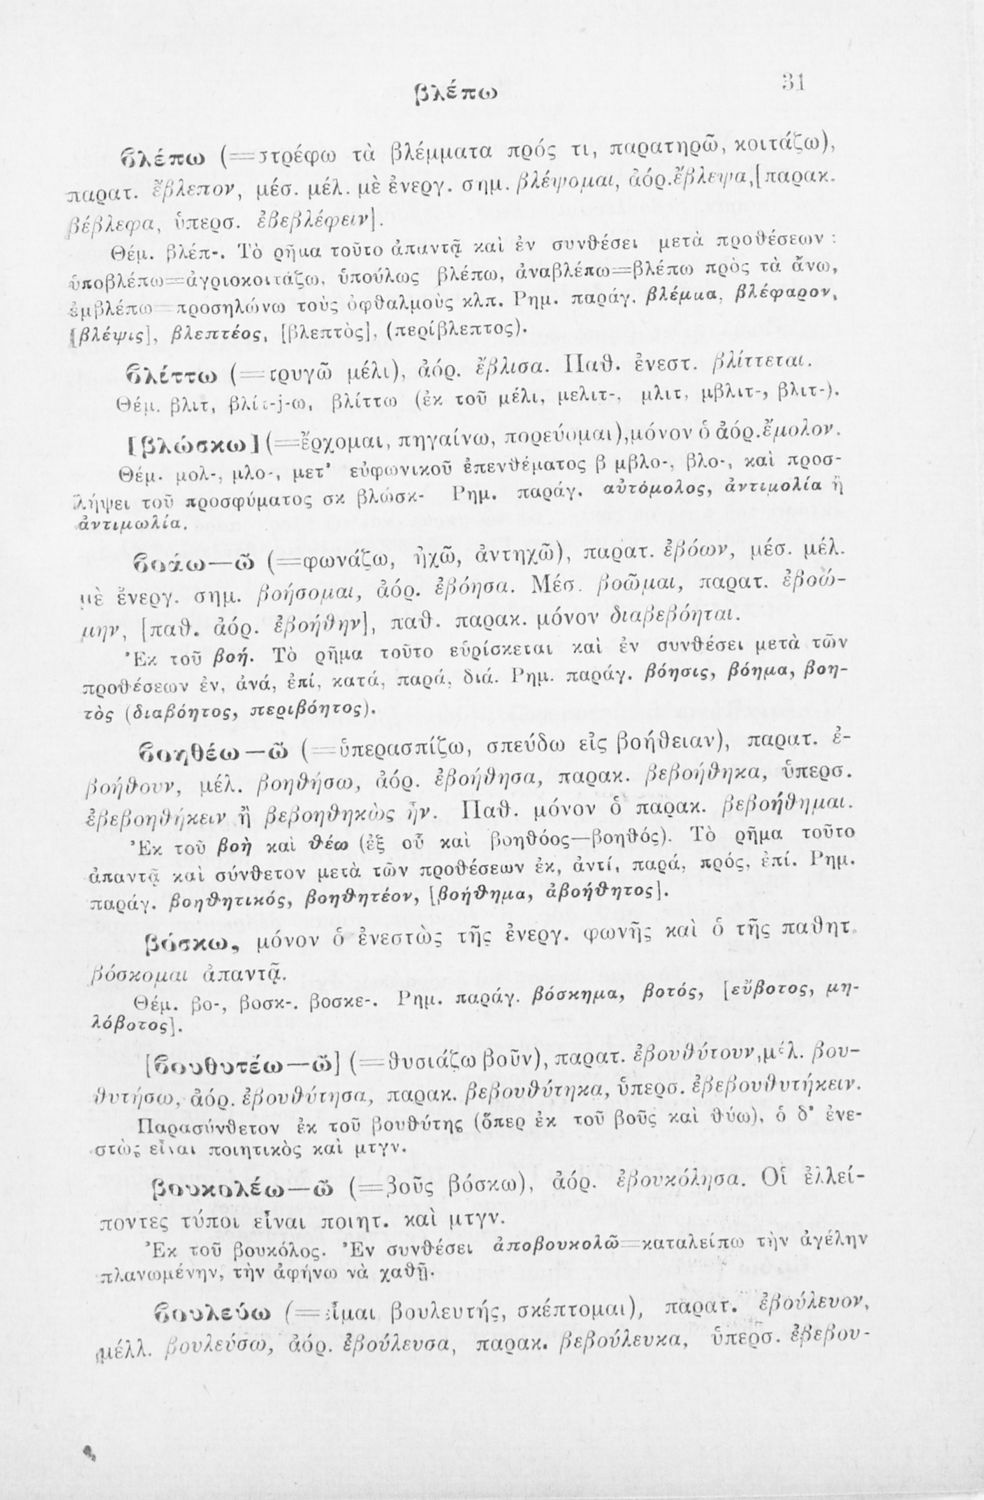 βλέπω 31
βλέπω (=στρέφω τὰ βλέμματα πρός τι, παρατηρῶ, κοιτάζω),
παρατ. ἔβλεπον, μέσ. μέλ. μὲ ἐνεργ. σημ. βλέψομαι, ἀόρ. ἔβλεψα, [παρακ.
βέβλεφα, ὑπερσ. ἐβεβλέφειν].
Θέμ. βλέπ-. Τὸ ρῆμα τοῦτο ἀπαντᾷ καὶ ἐν συνθέσει μετὰ προθέσεων:
ὑποβλέπω=ἀγριοκοιτάζω, ὑπούλως βλέπω, ἀναβλέπω=βλέπω πρὸς τὰ ἄνω,
ἐμβλέπω=προσηλώνω τοὺς ὀφθαλμοὺς κλπ. Ρημ. παράγ. βλέμμα, βλέφαρον,
[βλέψις], βλεπτέος, [βλεπτὸς], (περίβλεπτος).
βλίττω (=τρυγῶ μέλι), ἀόρ. ἔβλισα. Παθ. ἐνεστ. βλίττεται.
Θέμ. βλιτ, βλίτ-j-ω, βλίττω (ἐκ τοῦ μέλι, μελιτ-, μλιτ, μβλιτ-, βλιτ-).
[βλώσκω] (=ἔρχομαι, πηγαίνω, πορεύομαι), μόνον ὁ ἀόρ. ἔμολον.
Θέμ. μολ-, μλο-, μετ' εὐφωνικοῦ ἐπενθέματος β μβλο-, βλο-, καὶ προσ-
λήψει τοῦ προσφύματος σκ βλωσκ- Ρημ. παράγ. αὐτόμολος, ἀντιμολία ἢ
ἀντιμωλία.
βοάω—ῶ (=φωνάζω, ἠχῶ, ἀντηχῶ), παρατ. ἐβόων, μέσ. μέλ.
μὲ ἐνεργ. σημ. βοήσομαι, ἀόρ. ἐβόησα. Μέσ. βοῶμαι, παρατ. ἐβοώ-
μην, [παθ. ἀόρ. ἐβοήθην], παθ. παρακ. μόνον διαβεβόηται.
Ἐκ τοῦ βοή. Τὸ ρῆμα τοῦτο εὑρίσκεται καὶ ἐν συνθέσει μετὰ τῶν
προθέσεων ἐν, ἀνά, ἐπί, κατά, παρά, διά. Ρημ. παράγ. βόησις, βόημα, βοη-
τὸς (διαβόητος, περιβόητος).
βοηθέω—ῶ (=ὑπερασπίζω, σπεύδω εἰς βοήθειαν), παρατ. ἐ-
βοήθουν, μέλ. βοηθήσω, ἀόρ. ἐβοήθησα, παρακ. βεβοήθηκα, ὑπερσ.
ἐβεβοηθήκειν ἢ βεβοηθηκὼς ἦν. Παθ. μόνον ὁ παρακ. βεβοήθημαι.
Ἐκ τοῦ βοὴ καὶ θέω (ἐξ οὗ καὶ βοηθόος—βοηθός). Τὸ ρῆμα τοῦτο
ἀπαντᾷ καὶ σύνθετον μετὰ τῶν προθέσεων ἐκ, ἀντί, παρά, πρός, ἐπί. Ρημ.
παράγ. βοηθητικός, βοηθητέον, [βοήθημα, ἀβοήθητος].
βόσκω, μόνον ὁ ἐνεστὼς τῆς ἐνεργ. φωνῆς καὶ ὁ τῆς παθητ.
βόσκομαι ἀπαντᾷ.
Θέμ. βο-, βοσκ-. βοσκε-. Ρημ. παράγ. βόσκημα, βοτός, [εὔβοτος, μη-
λόβοτος].
[βουθυτέω—ῶ] (=θυσιάζω βοῦν), παρατ. ἐβουθύτουν, μέλ. βου-
θυτήσω, ἀόρ. ἐβουθύτησα, παρακ. βεβουθύτηκα, ὑπερσ. ἐβεβουθυτήκειν.
Παρασύνθετον ἐκ τοῦ βουθύτης (ὅπερ ἐκ τοῦ βοῦς καὶ θύω), ὁ δ' ἐνε-
στὼς εἶναι ποιητικὸς καὶ μτγν.
βουκολέω—ῶ (=βοῦς βόσκω), ἀόρ. ἐβουκόλησα. Οἱ ἐλλεί-
ποντες τύποι εἶναι ποιητ. καὶ μτγν.
Ἐκ τοῦ βουκόλος. Ἐν συνθέσει ἀποβουκολῶ=καταλείπω τὴν ἀγέλην
πλανωμένην, τὴν ἀφήνω νὰ χαθῇ.
βουλεύω (=εἶμαι βουλευτής, σκέπτομαι), παρατ. ἐβούλευον,
μέλλ. βουλεύσω, ἀόρ. ἐβούλευσα, παρακ. βεβούλευκα, ὑπερσ. ἐβεβου-